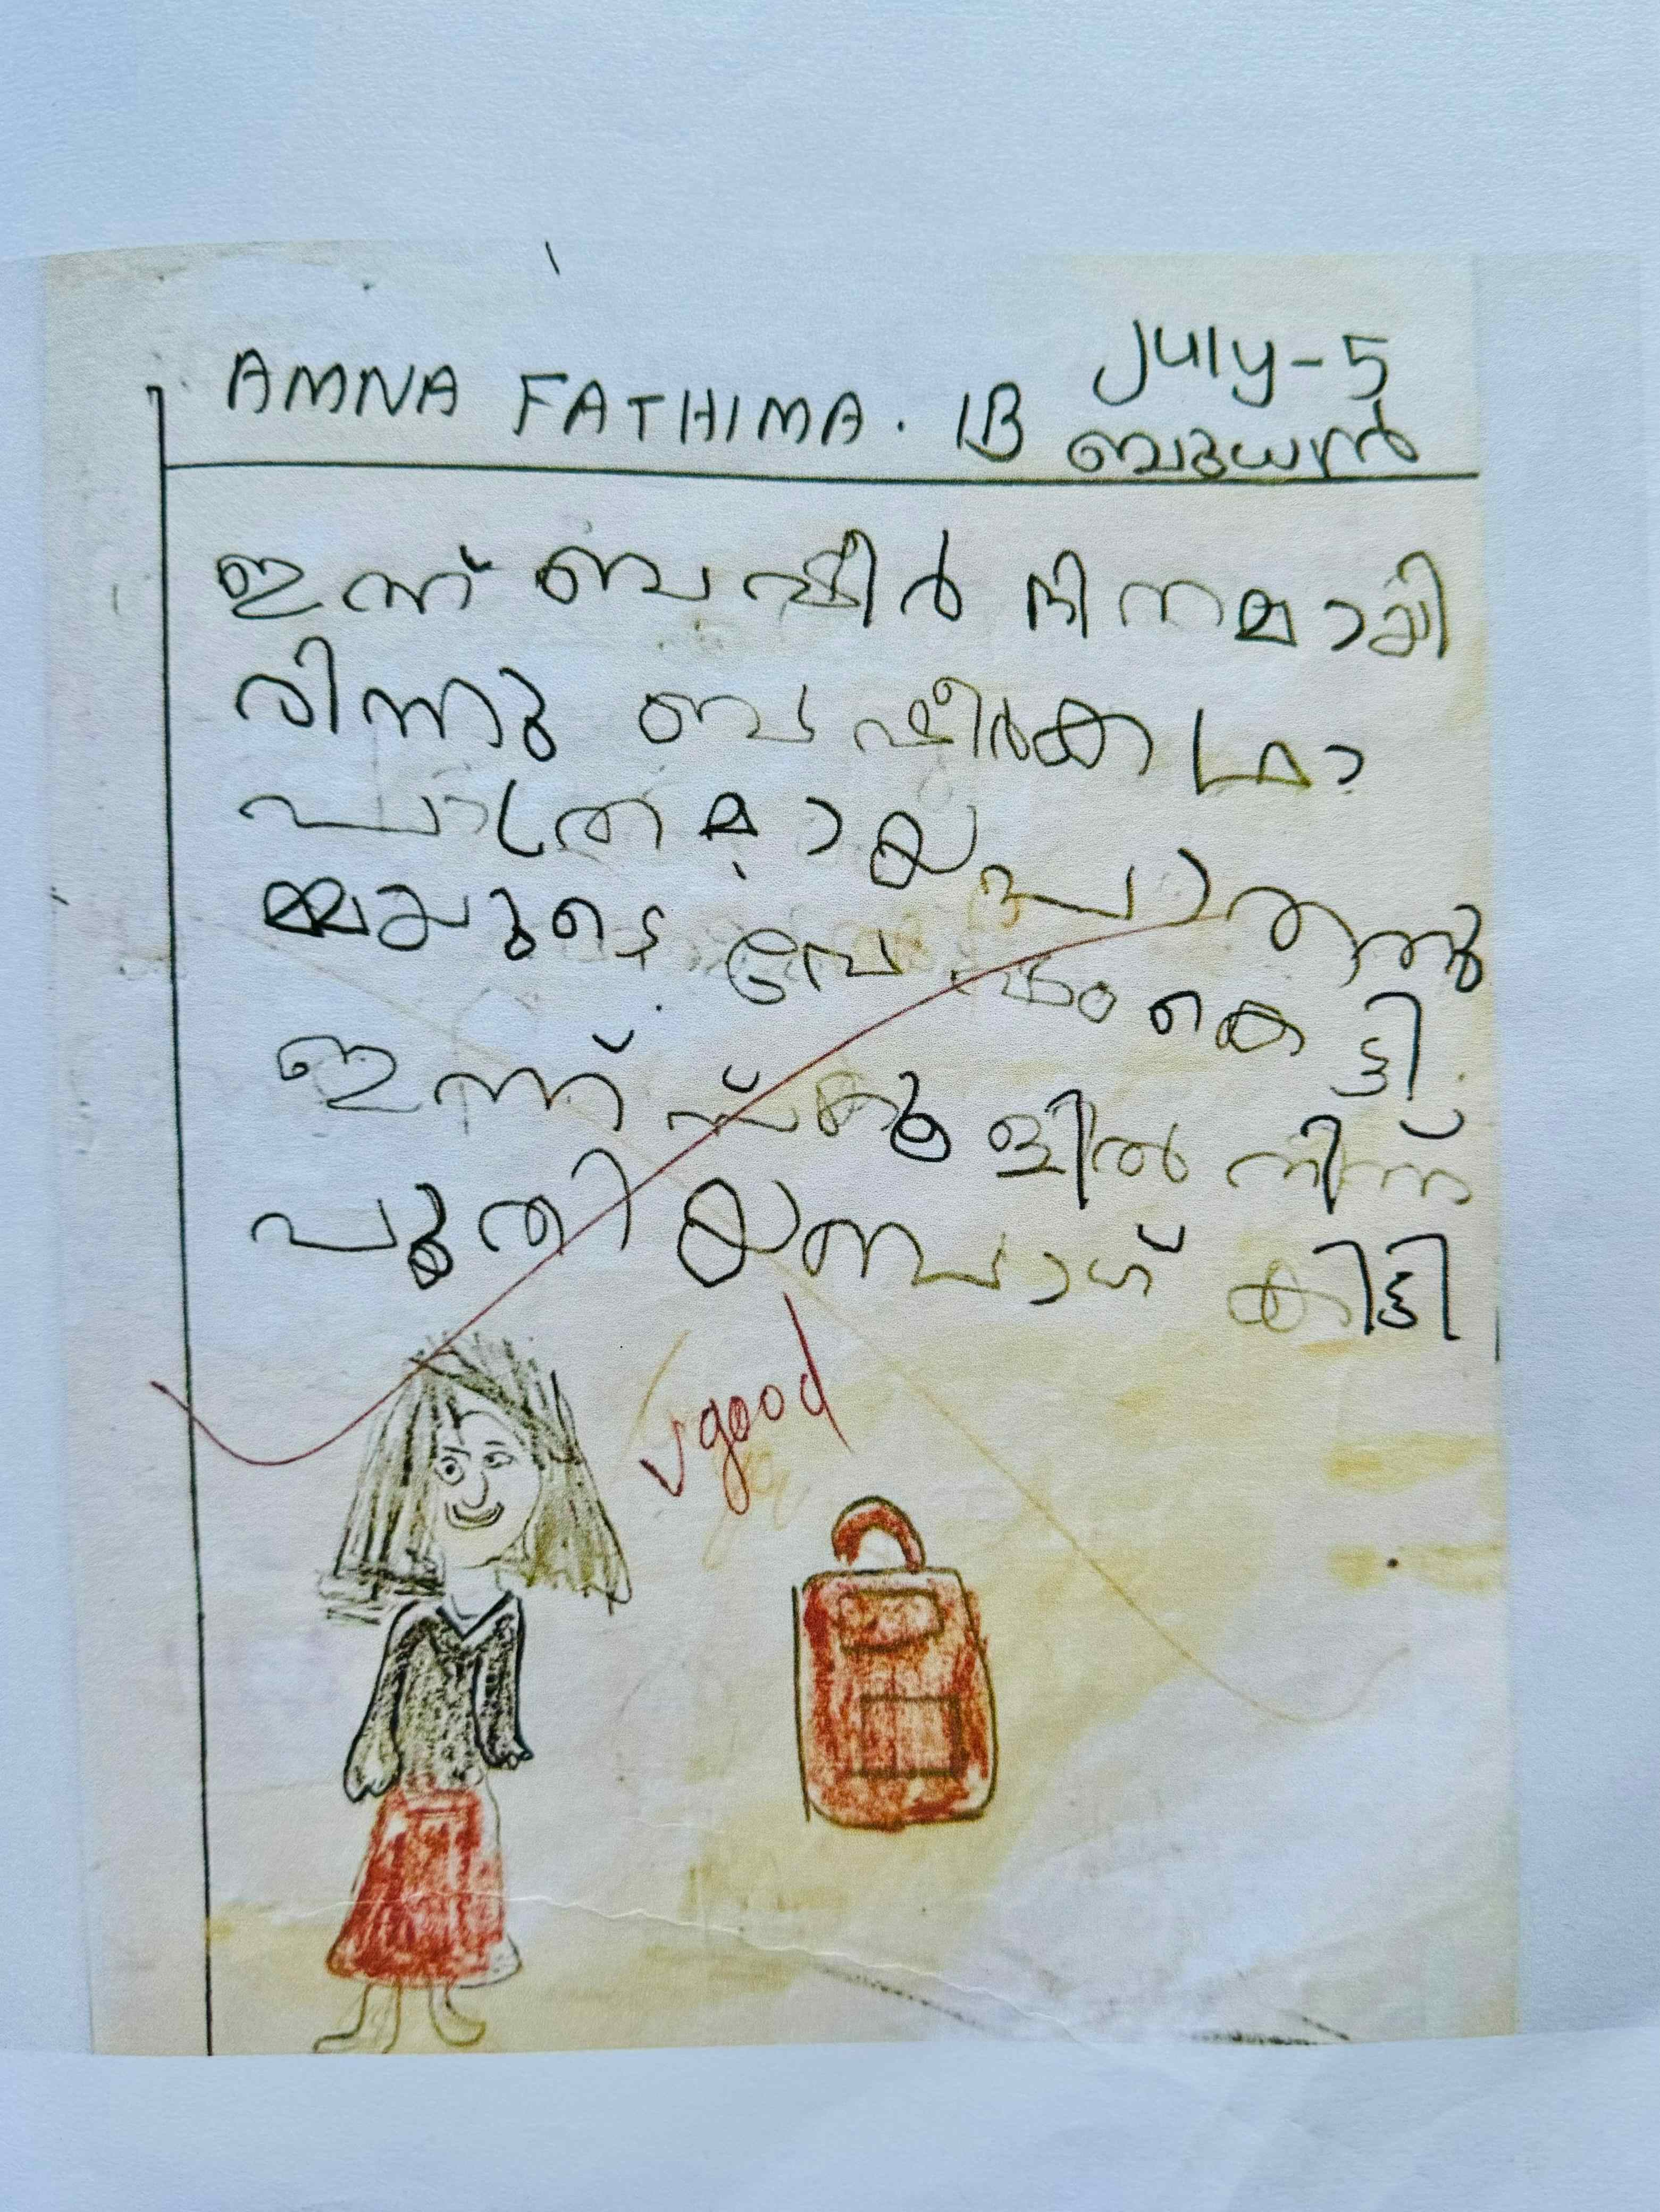 AMNA FATHIMA. 1B July-5
ബുധൻ
ഇന്ന് ബഷീർ ദിനമായി
രിന്നു ബഷീർകഥാ
പാത്രമായ പാത്തു
മ്മയുടെ വേഷം കെട്ടി
ഇന്ന് സ്കൂളിൽ നിന്ന്
പുതിയ ബാഗ് കിട്ടി
vgood